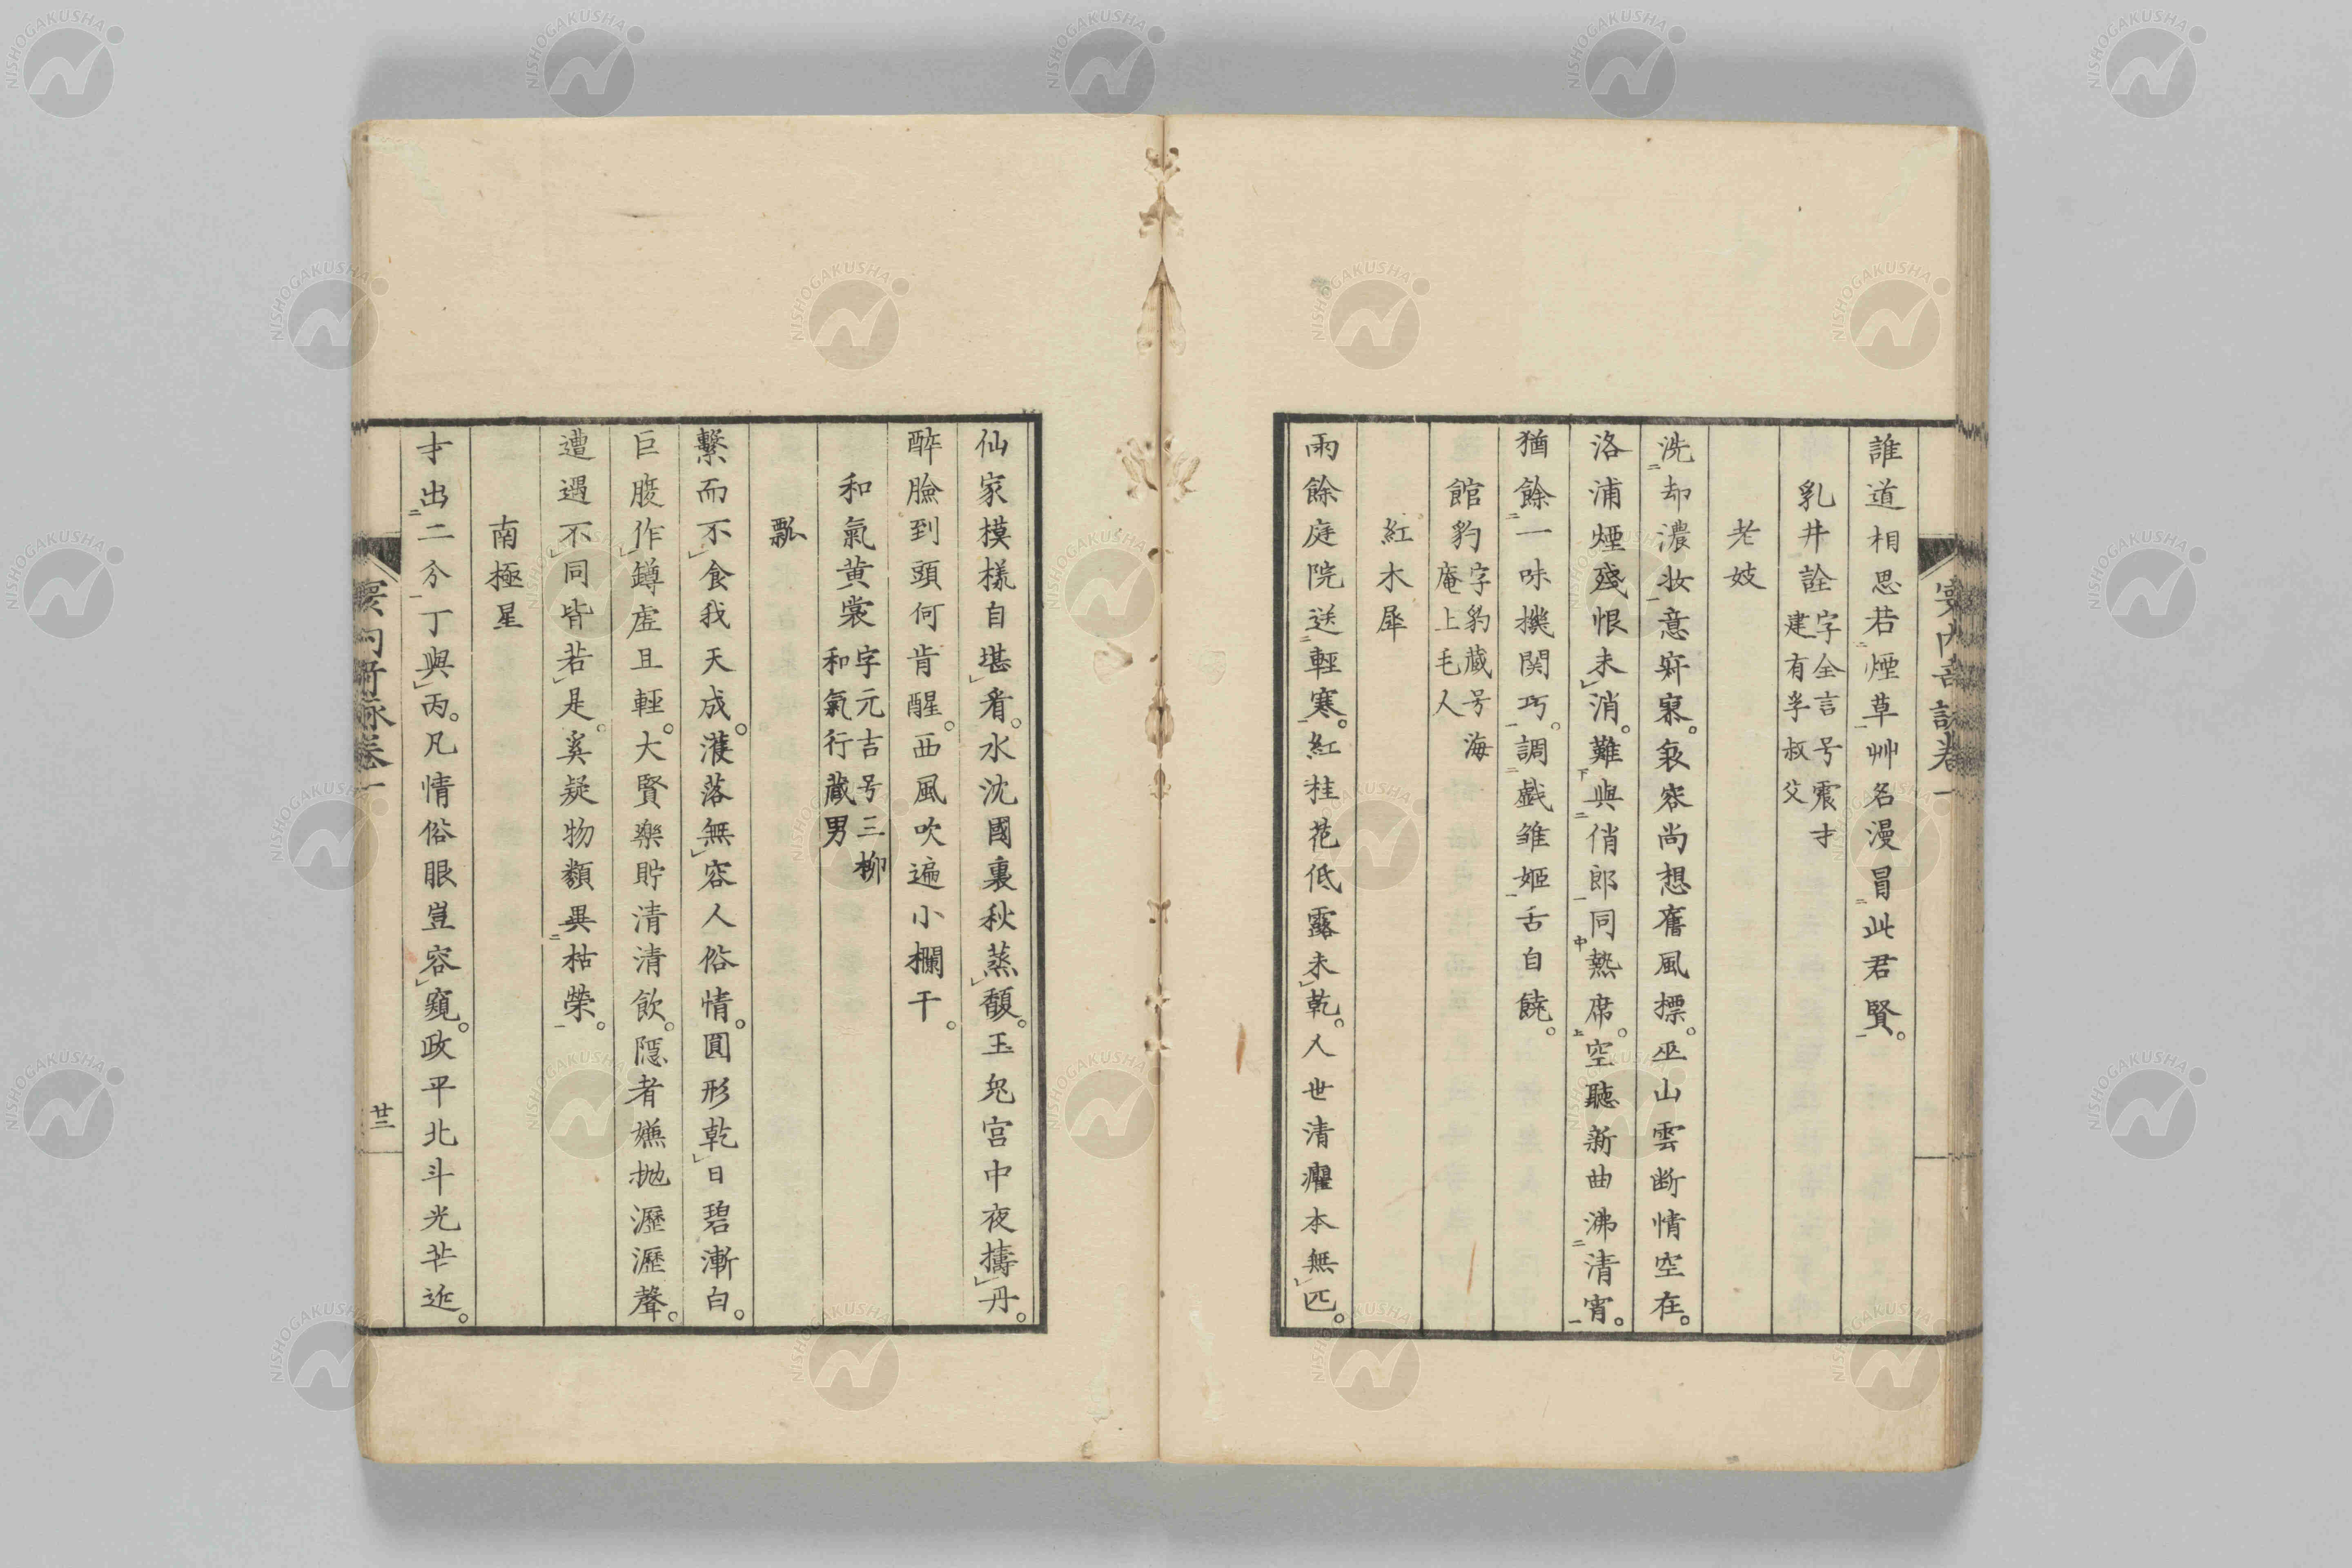 誰道相思若煙草艸名漫冒此君賢
乳井詮 字全言号震才
建有孚叔父
老妓
洗却濃妝意寂寞衰容尚想舊風標巫山雲断情空在
洛浦煙殘恨未消難與俏郎同熱席空聽新曲沸清宵
猶餘一味機関巧調戲雏姬舌自饒
館豹 字豹蔵号海
庵上毛人
紅木犀
雨餘庭院送輕寒紅桂花低露未乾人世清癯本無匹
仙家模樣自堪看水沈國裏秋蒸馥玉兎宮中夜擣丹
醉臉到頭何肯醒西風吹遍小欄干
和氣黄裳 字元吉号三柳
和氣行蔵男
瓢
繫而不食我天成濩落無容人俗情圓形乾日碧漸白
巨腹作罇虛且輕大賢樂貯清清飲隱者嫌抛瀝瀝聲
遭遇不同皆若是奚疑物類異枯榮
南極星
才出二分丁與丙凡情俗眼豈容窺政平北斗光芒近
廿三
NISHOGAKUSHA